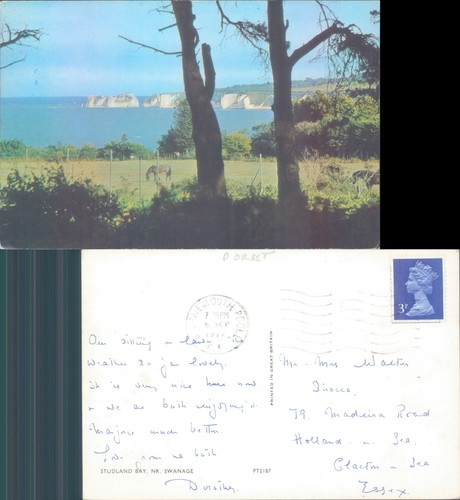 DORSET
BOURNEMOUTH POOLE
7 PM
SEP
3P
Am sitting in
weather so far lovely
it is very nice here now
& we are both enjoying it.
Marjorie much better.
Love from us both
Dorothy.
PRINTED IN GREAT BRITAIN
Mr. Mrs Walter
79. Madeira Road
Holland. on. Sea.
Clacton - Sea
Essex.
STUDLAND BAY, NR. SWANAGE
PT2187